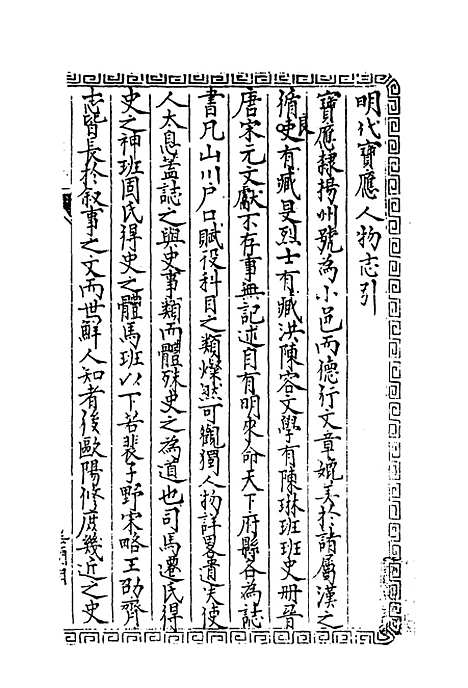 明代寶應人物志引
寶應隸揚州號為小邑而德行文章媲美於諸屬漢之
循吏有臧旻烈士有臧洪陳容文學有陳琳班班史冊晉
良
唐宋元文獻不存事無記述自有明來命天下府縣各為誌
書凡山川戶口賦役科目之類燦然可觀獨人物詳畧貴失使
人太息蓋誌之與史事類而體殊史之為道也司馬遷氏得
史之神班固氏得史之體馬班以下若裴子野宋略王劭齊
志皆長於叙事之文而世鮮人知者後歐陽修庶幾近之史